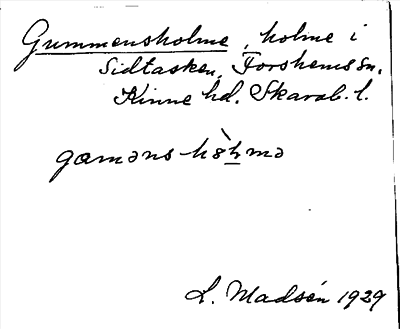 Gummensholme, holme i
Sidtasken, Forshems sn.
Kinne hd. Skarab. l.
gɷməns-hòlmə
L. Madsén 1929